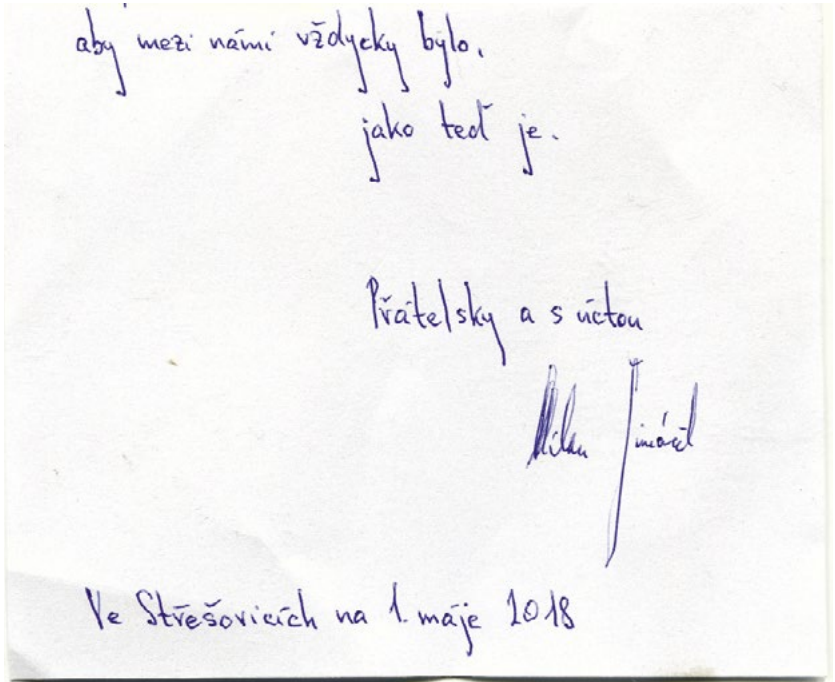 aby mezi námi vždycky bylo.
jako teď je.
Přátelsky a s úctou
Milan
Ve Střešovicích na 1. máje 2018